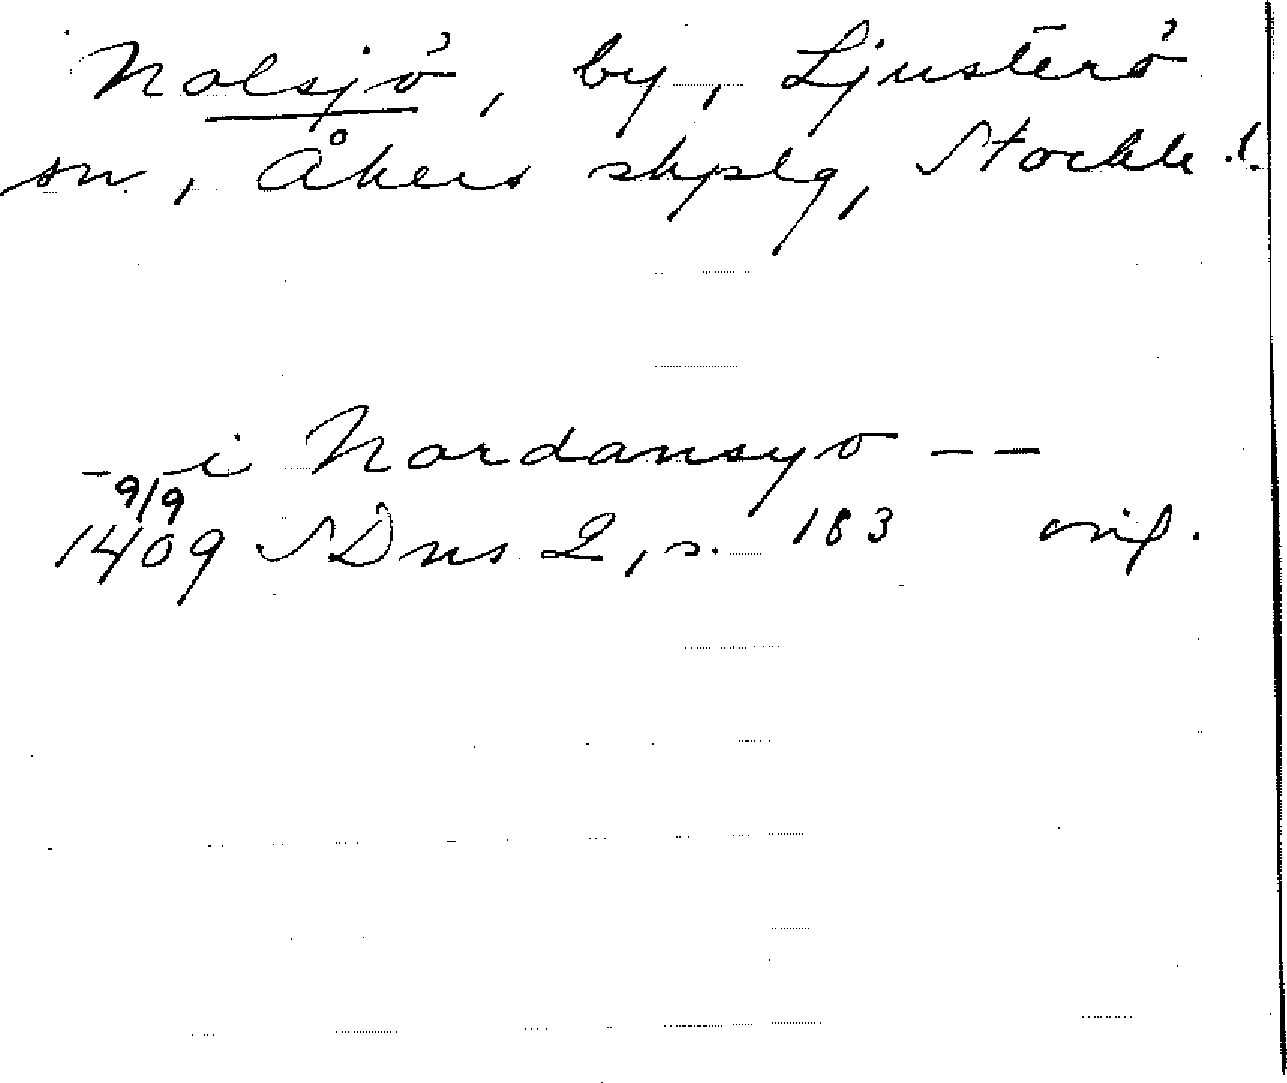 Nolsjö, by, Ljusterö
sn, Åkers skplg, Stockh. l.
- - i Nordansyo - -
9/9
1409 SDns 2, s. 183 orig.